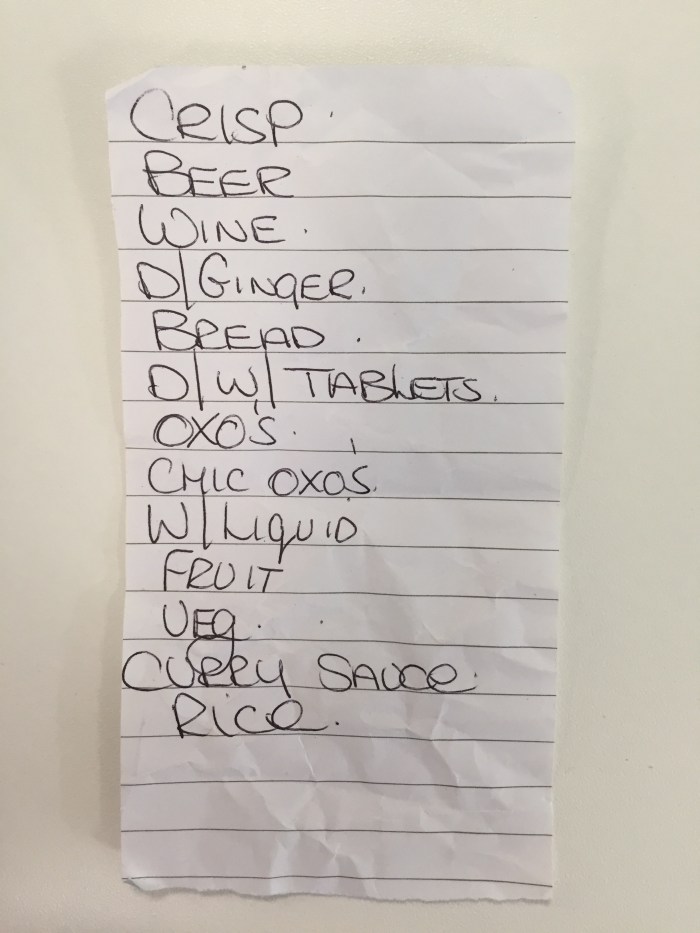 CRISP.
BEER
WINE.
D/GINGER.
BREAD.
D/W/TABLETS.
OXO'S.
CHIC OXO'S.
W/LIQUID
FRUIT
VEG.
CURRY SAUCE.
RICE.